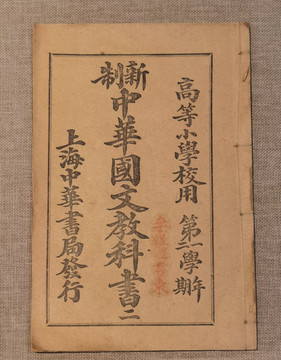 高等小學校用 第一學年 第二學期
新制
中華國文教科書二
上海中華書局發行